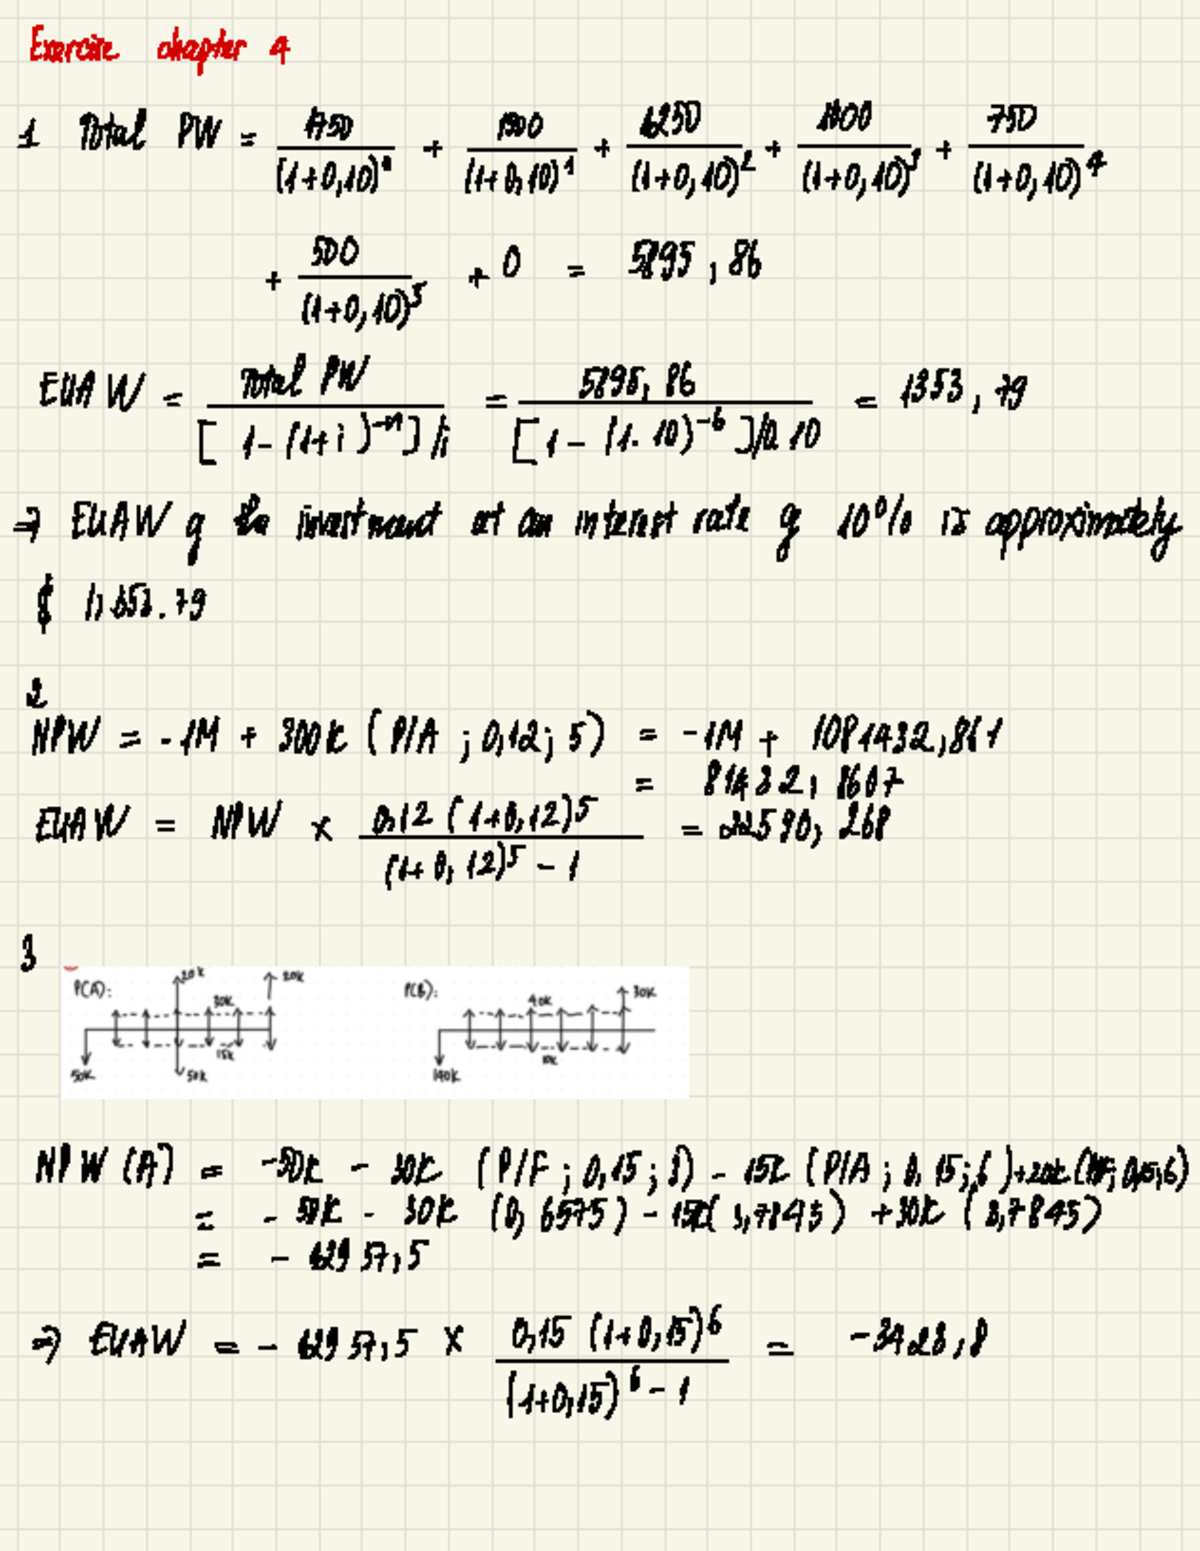 Exercise chapter 4
1 Total PW = 1750/(1+0,10)⁰ + 1500/(1+0,10)¹ + 1250/(1+0,10)² + 1000/(1+0,10)³ + 750/(1+0,10)⁴
+ 500/(1+0,10)⁵ + 0 = 5895,86
EUAW = Total PW/[1-(1+i)⁻ⁿ]/i = 5895,86/[1-(1.10)⁻⁶]/0.10 = 1353,79
⇒ EUAW of the investment at an interest rate of 10% is approximately
$ 1,353.79
2
NPW = -1M + 300k (P/A ; 0,12; 5) = -1M + 1081432,861
= 81432,8607
EUAW = NPW × 0,12 (1+0,12)⁵/(1+0,12)⁵ - 1 = 22590,268
3
P(A): 20k 30k 20k
50k 50k 15k
P(B): 40k 30k
140k 10k
NPW (A) = -50k - 30k (P/F ; 0,15; 3) - 15k (P/A ; 0,15; 6) + 20k (P/F; 0,15; 6)
= - 50k - 30k (0,6575) - 15k( 3,7845) + 30k ( 3,7845)
= - 12957,5
⇒ EUAW = - 12957,5 × 0,15 (1+0,15)⁶/(1+0,15)⁶ - 1 = -3423,8